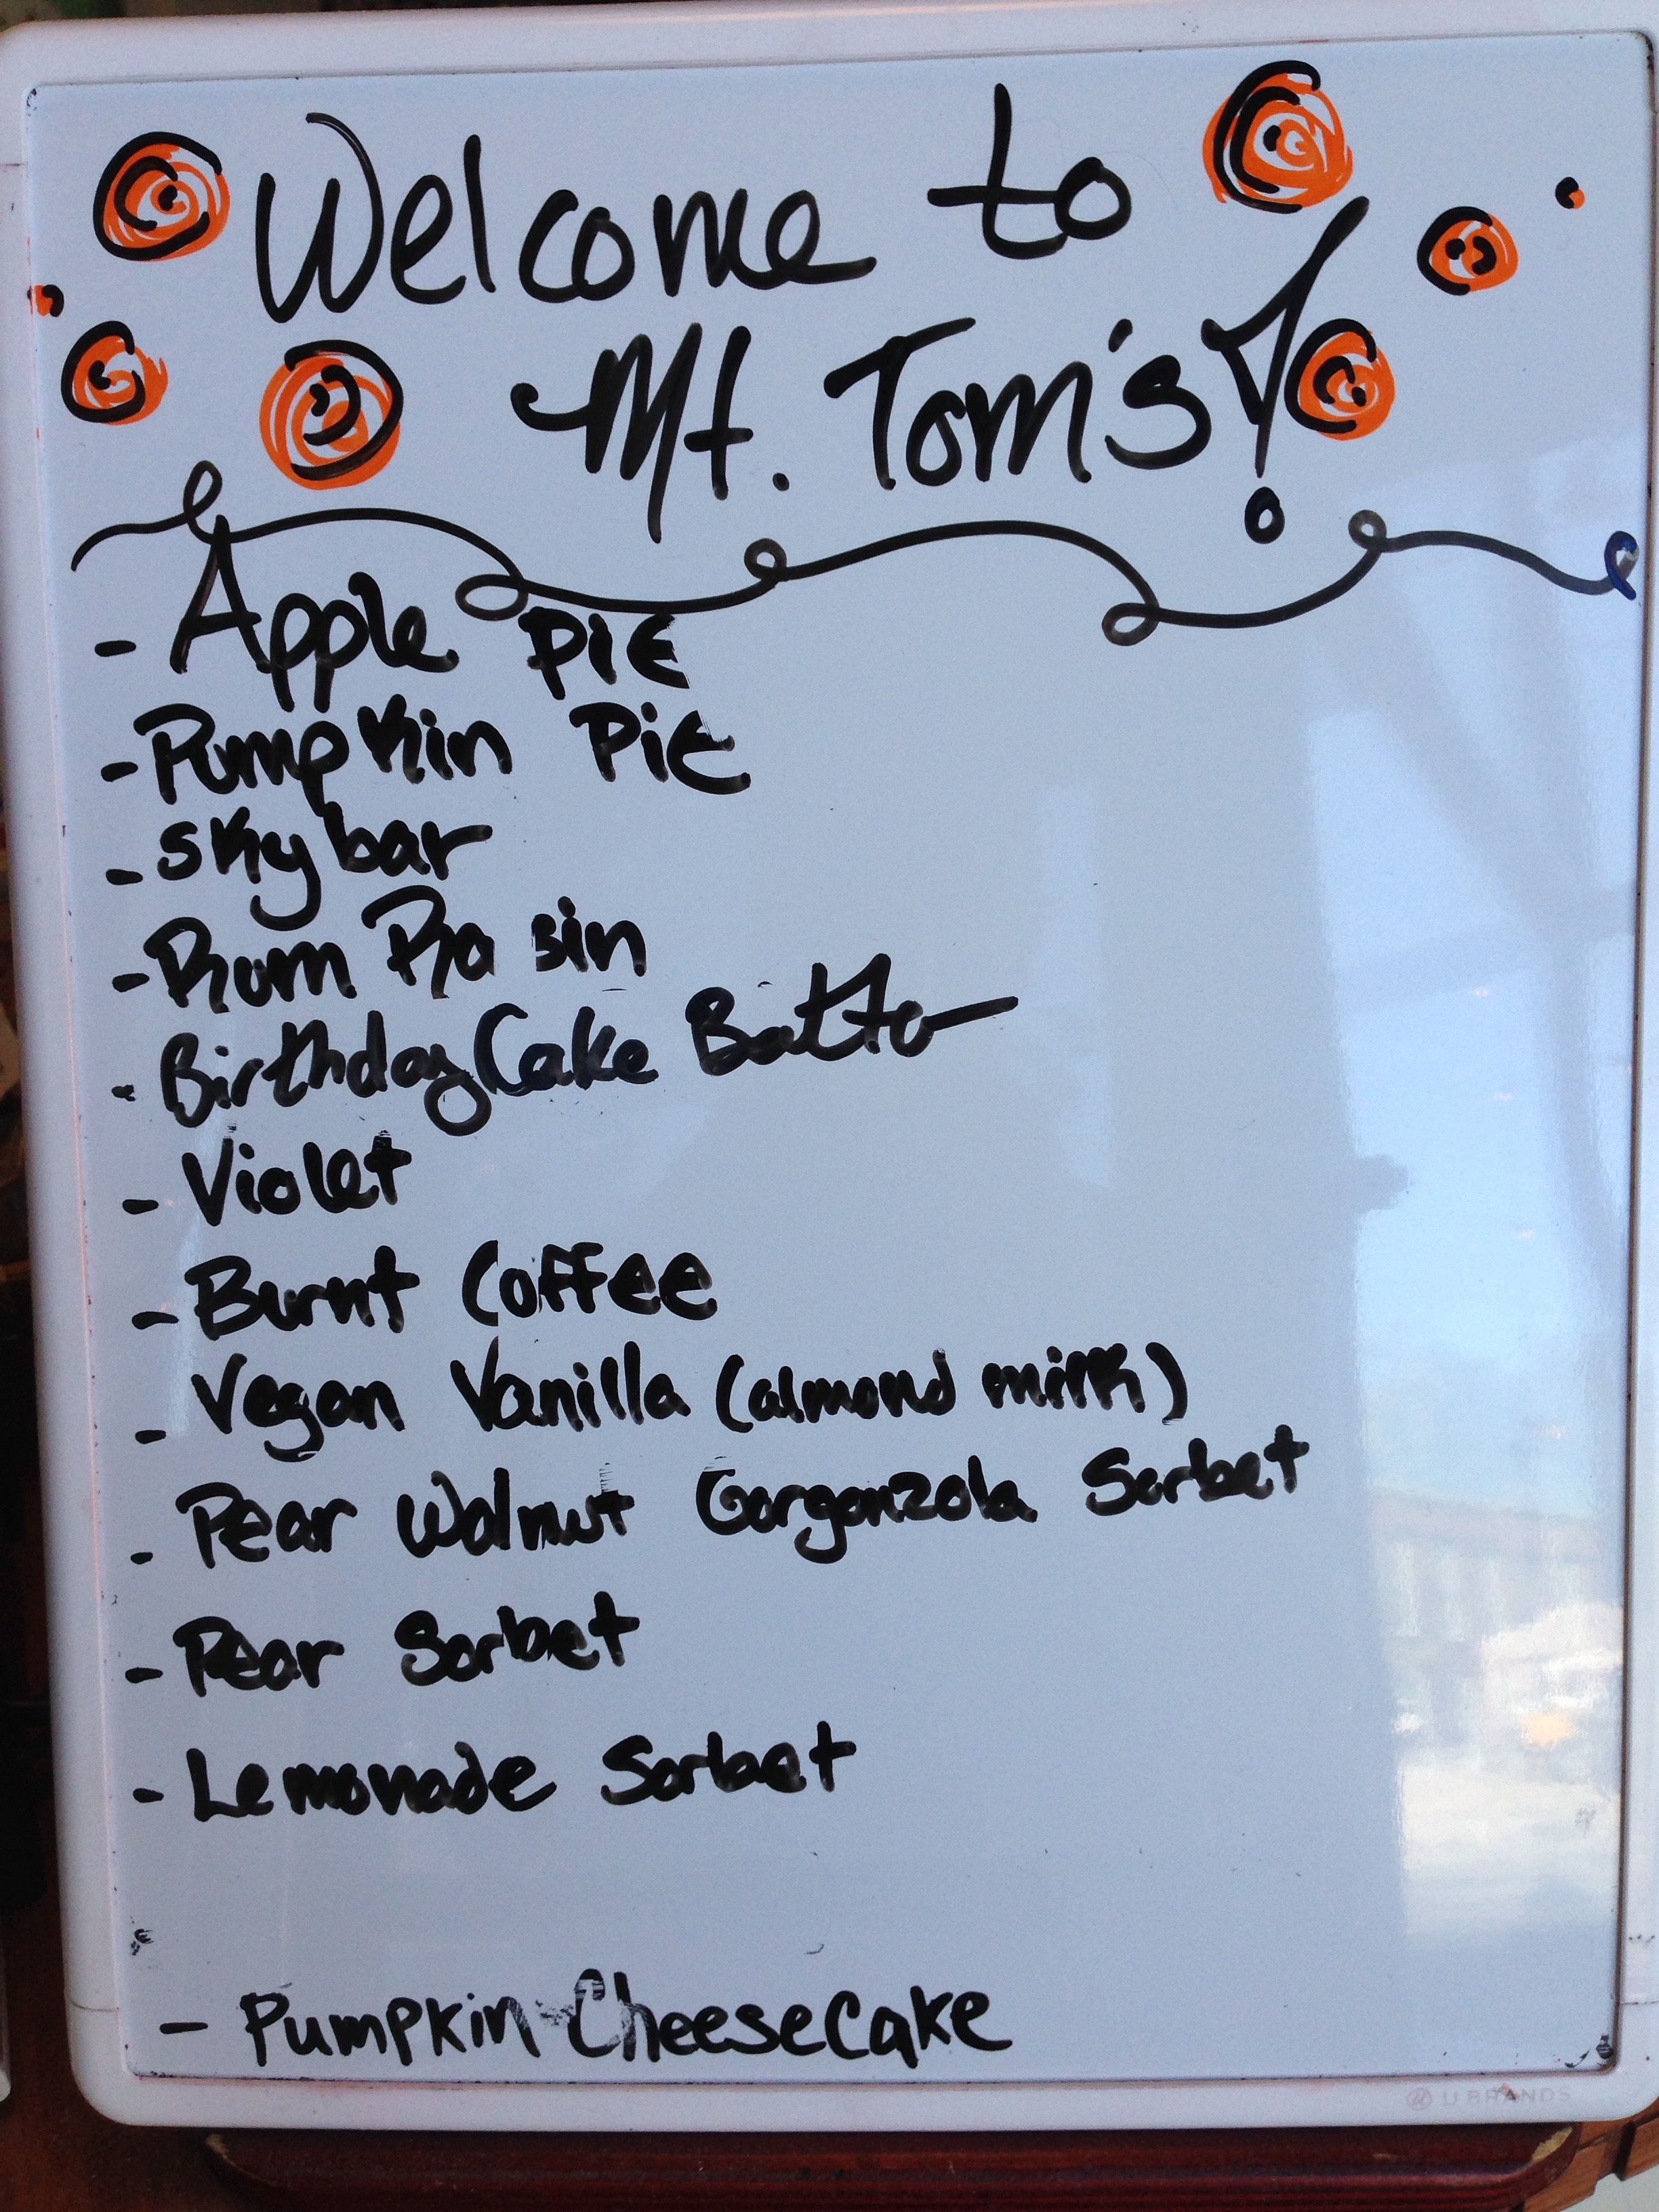 Welcome to
Mt. Tom's!
- Apple PiE
- Pumpkin PiE
- skybar
- Rum Ra sin
- Birthday Cake Batter
- Violet
- Burnt Coffee
- Vegan Vanilla (almond milk)
- Pear Walnut Gorgonzola Sorbet
- Pear Sorbet
- Lemonade Sorbet
- Pumpkin Cheesecake
U BRANDS